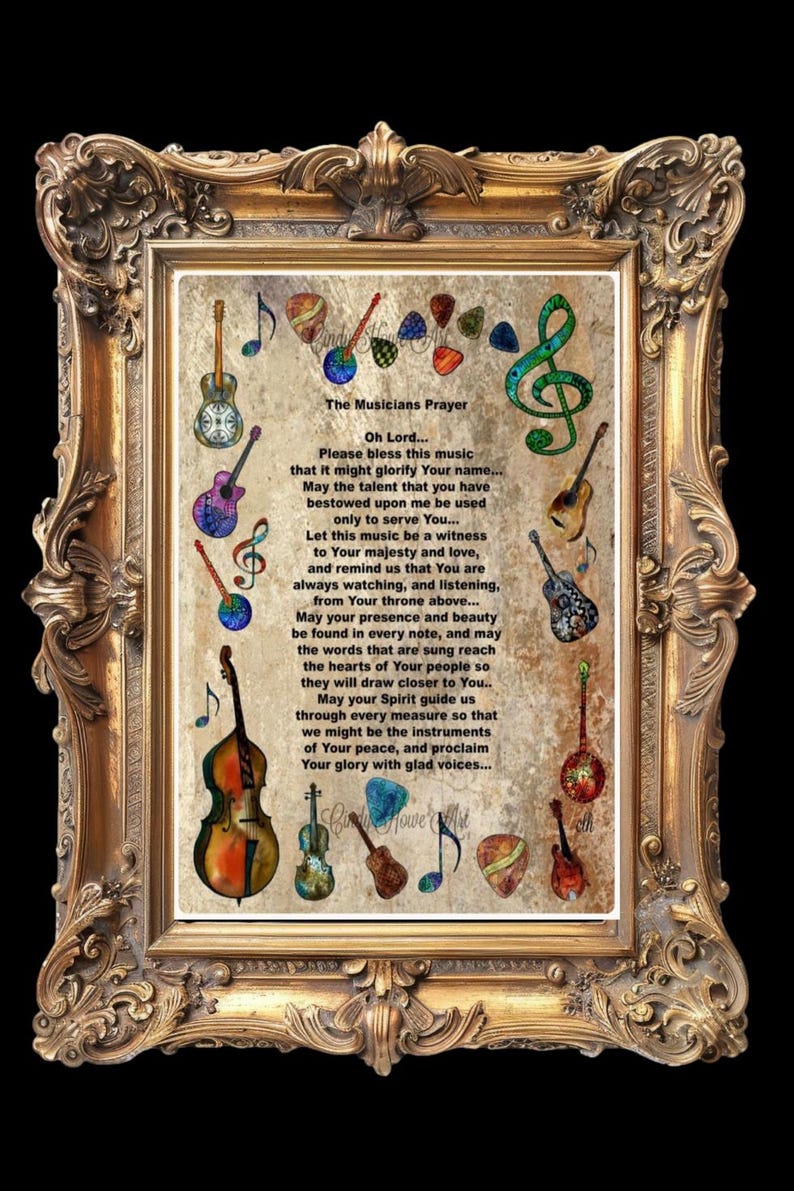 Cindy Howe Art
The Musicians Prayer
Oh Lord...
Please bless this music
that it might glorify Your name...
May the talent that you have
bestowed upon me be used
only to serve You...
Let this music be a witness
to Your majesty and love,
and remind us that You are
always watching, and listening,
from Your throne above...
May your presence and beauty
be found in every note, and may
the words that are sung reach
the hearts of Your people so
they will draw closer to You..
May your Spirit guide us
through every measure so that
we might be the instruments
of Your peace, and proclaim
Your glory with glad voices...
Cindy Howe Art
clh